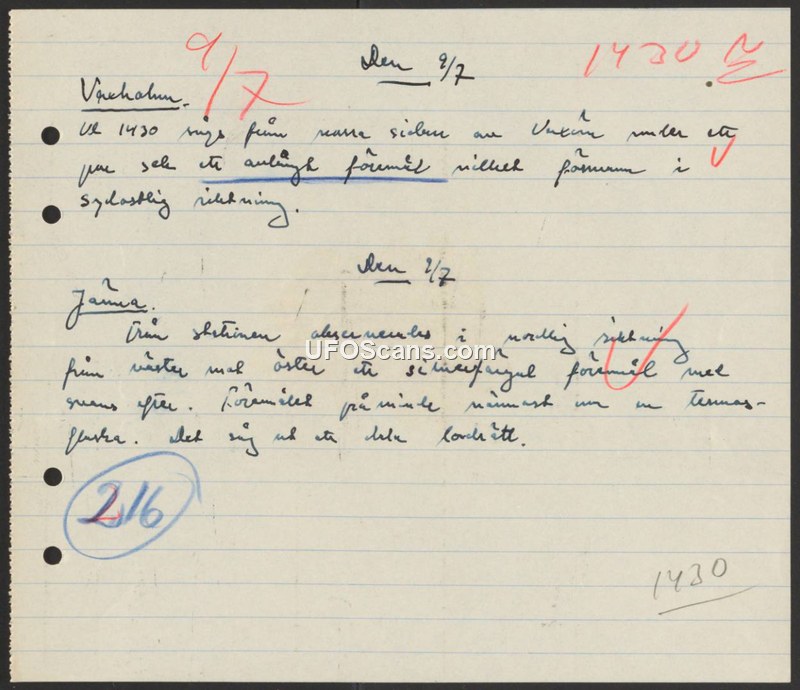 9/7
Den 9/7
1430
Vaxholm.
Kl 1430 sågs från norra sidan av Vaxön under ett
par sek ett avlångt föremål vilket försvann i
sydostlig riktning.
Den 9/7
Järna.
Från stationen observerades i nordlig riktning
UFOScans.com
från väster mot öster ett silverfärgat föremål med
svans efter. Föremålet påminde närmast om en termos-
flaska. Det såg ut att dala lodrätt.
216
1430